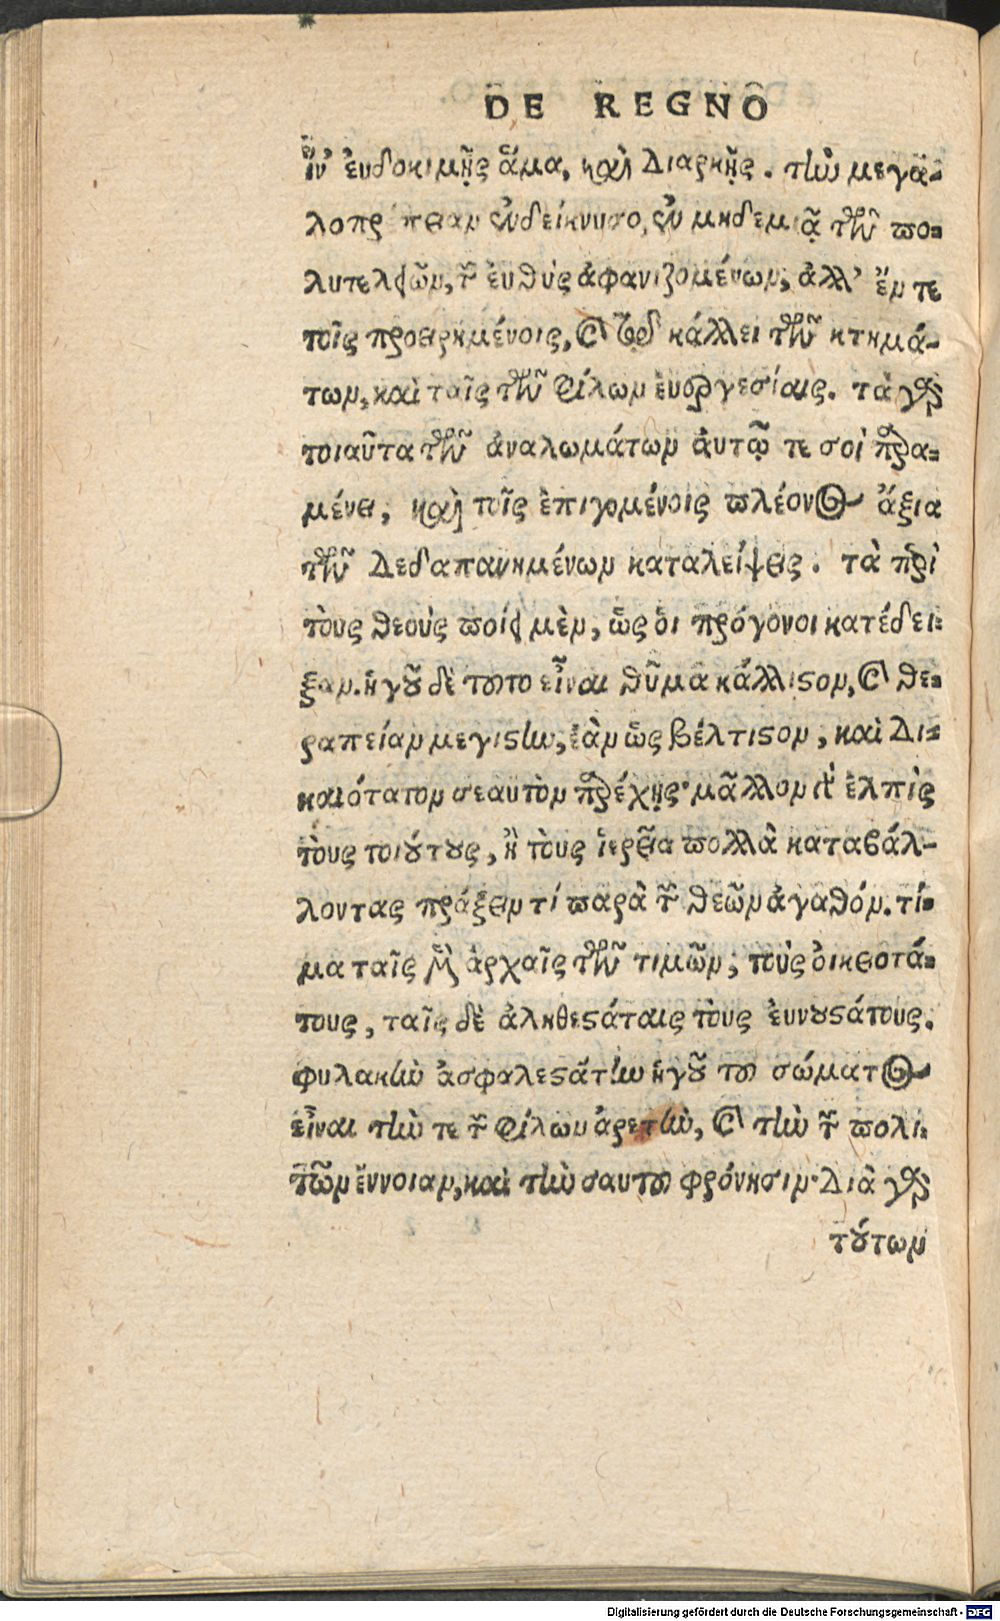 DE REGNO
ἵν’ ἐυδοκιμῇς ἅμα, καὶ διαρκῇς. τὴν μεγα-
λοπρ πειαν ἐνδείκνυσο, ἐν μηδεμιᾷ τῶν πο-
λυτελειῶν, τῶν ἐυθὺς ἀφανιζομένων, ἀλλ’ ἔν τε
τοῖς προειρημένοις, καὶ τῷ κάλλει τῶν κτημά-
των, καὶ ταῖς τῶν φίλων ἐυεργεσίαις. τὰ γὰρ
τοιαῦτα τῶν ἀναλωμάτων ἀυτῷ τε σοὶ παρα-
μένει, καὶ τοῖς ἐπιγομένοις πλέονος ἄξια
τῶν δεδαπανημένων καταλείψεις. τὰ περὶ
τοὺς θεοὺς ποίει μὲν, ὡς ὁι πρόγονοι κατέδει-
ξαν. ἡγοῦ δὲ τοῦτο εἶναι θῦμα κάλλιστον, καὶ θε-
ραπείαν μεγιστην, ἐὰν ὡς βέλτιστον, καὶ δι-
καιότατον σεαυτὸν παρέχῃς· μᾶλλον γὰρ ἐλπὶς
τοὺς τοιούτους, ἢ τοὺς ἱερεῖα πολλὰ καταβάλ-
λοντας πράξειν τί παρὰ τῶν θεῶν ἀγαθόν. τί-
μα ταῖς μὲν ἀρχαῖς τῶν τιμῶν, τοὺς ὀικειοτά-
τους, ταῖς δὲ ἀληθεστάταις τοὺς ἐυνουστάτους.
φυλακὴν ἀσφαλεστάτην ἡγοῦ τοῦ σώματος
εἶναι τήν τε τῶν φίλων ἀρετὴν, καὶ τὴν τῶν πολι-
τῶν ἔννοιαν, καὶ τὴν σαυτοῦ φρόνησιν· διὰ γὰρ
τούτων
Digitalisierung gefördert durch die Deutsche Forschungsgemeinschaft - DFG